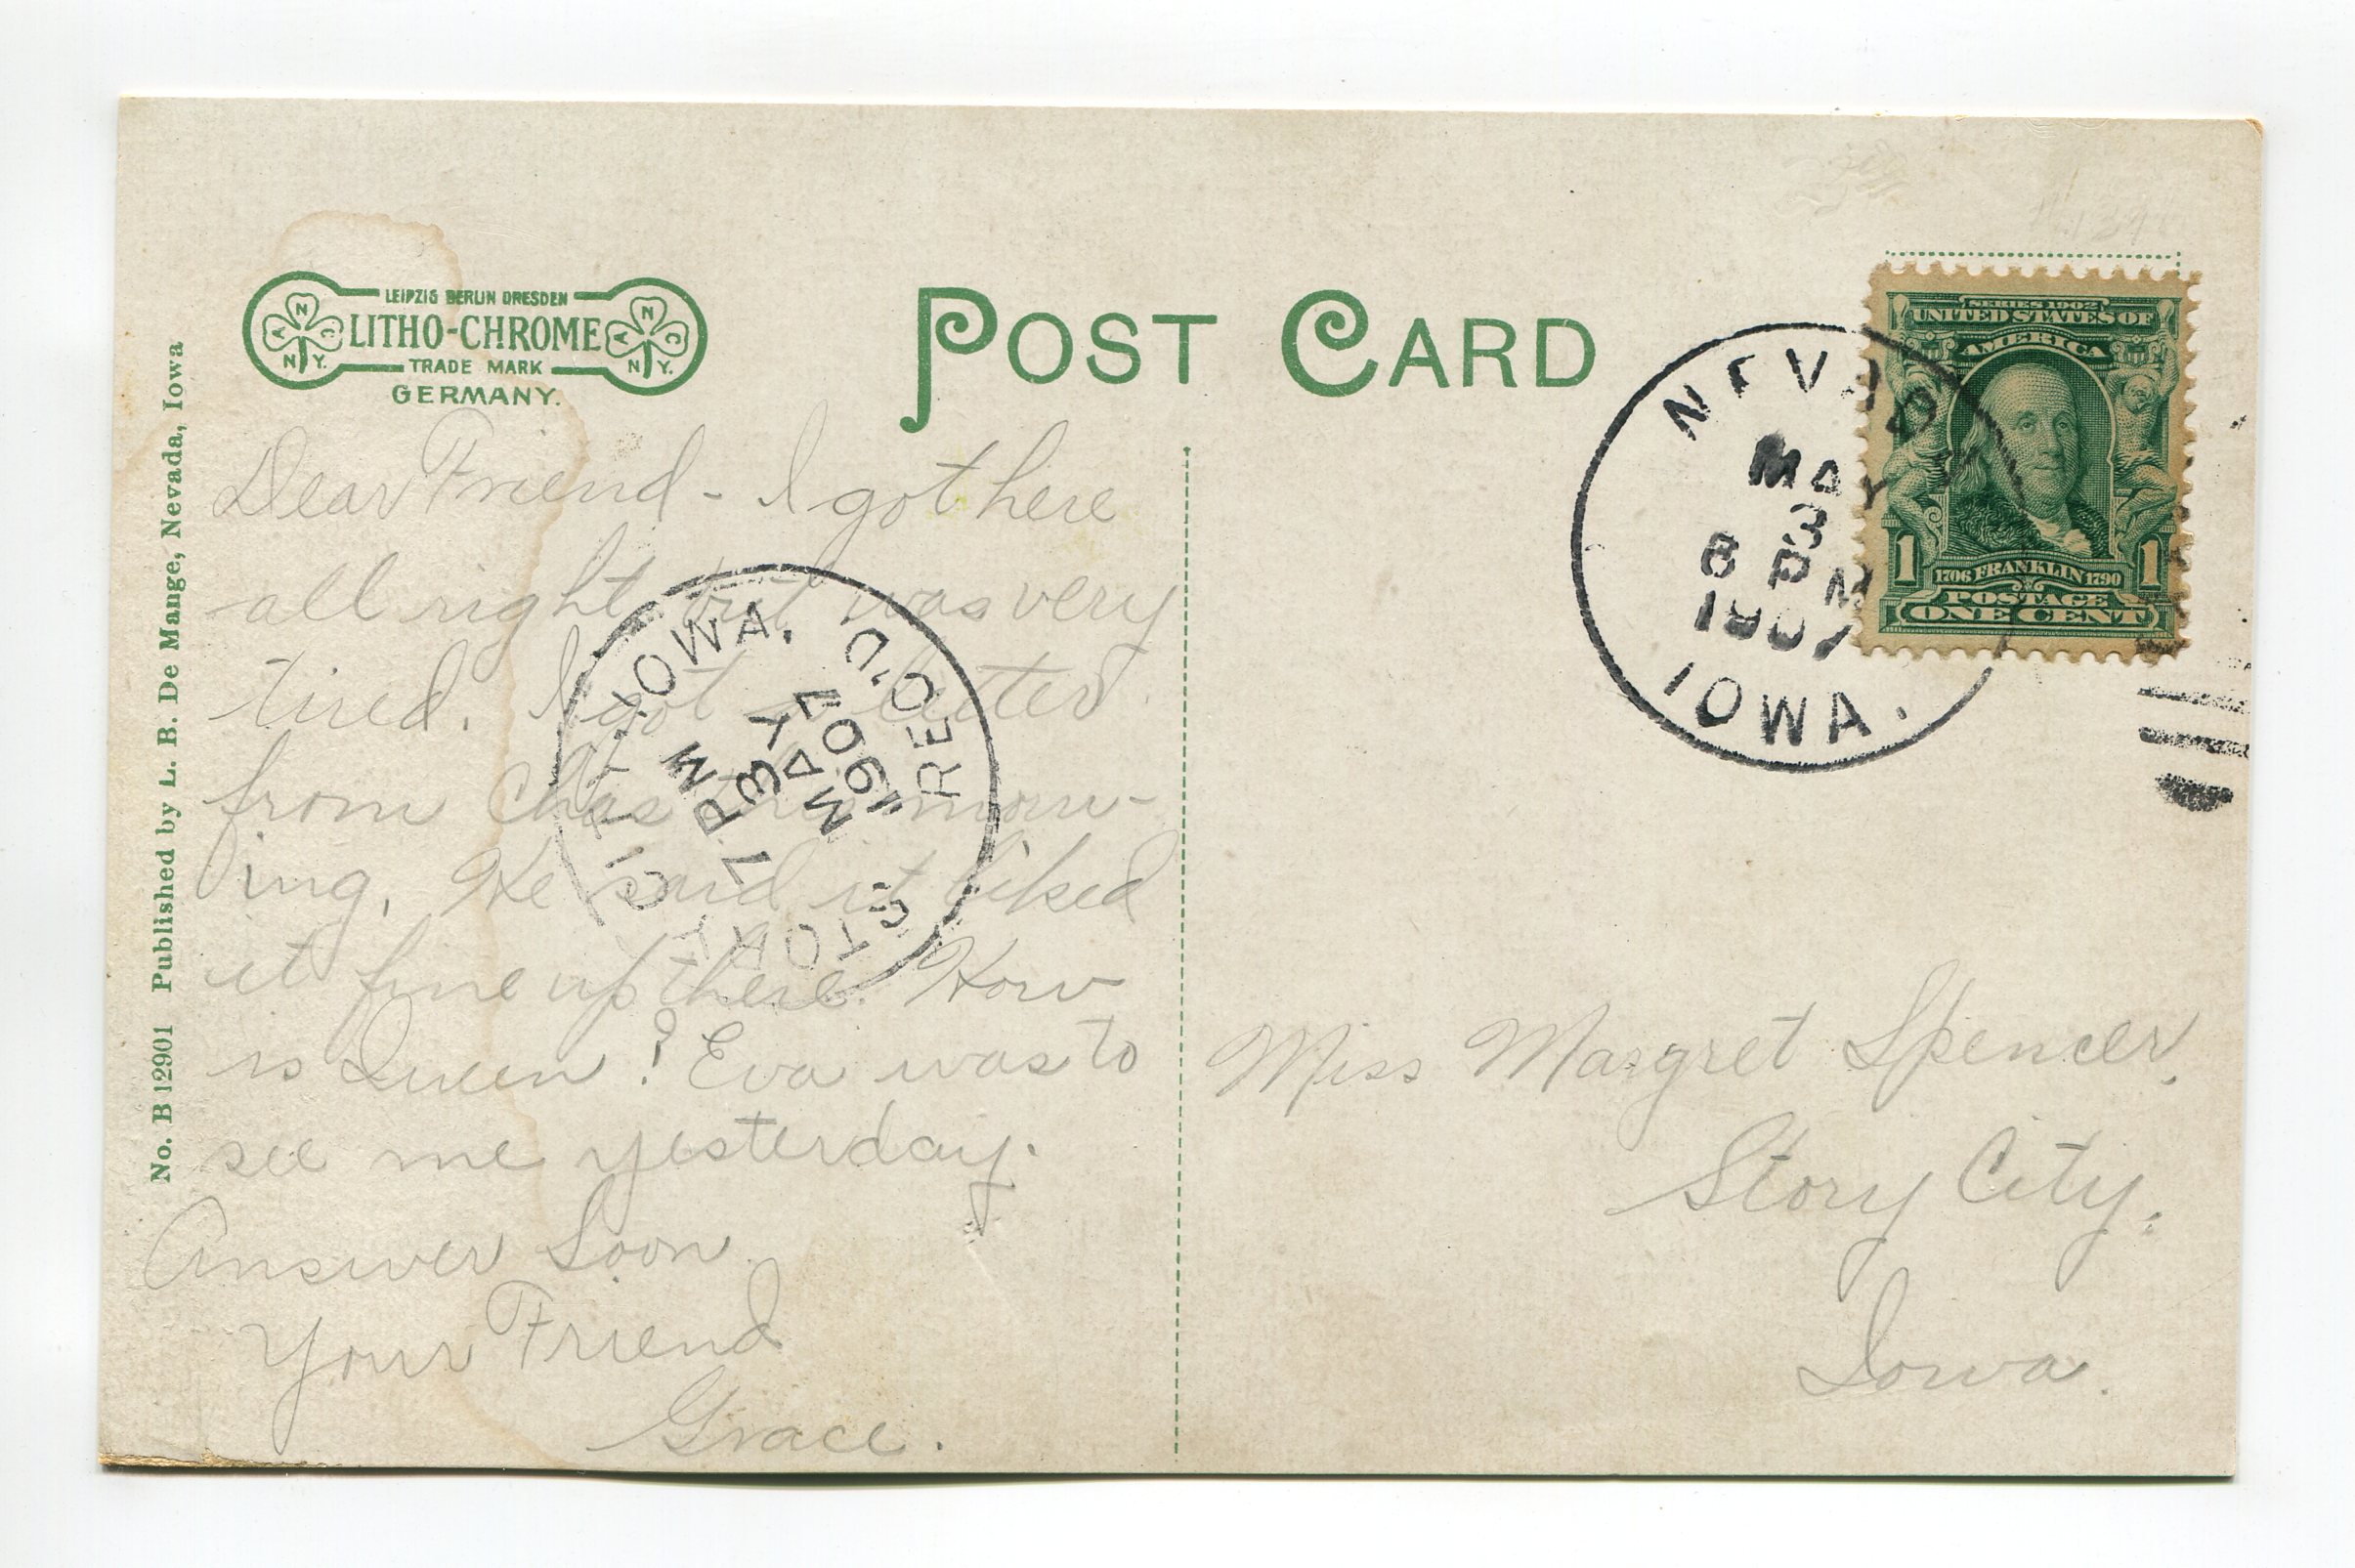 LEIPZIG BERLIN DRESDEN
LITHO-CHROME
TRADE MARK
GERMANY.
A N C
N.Y.
A N C
N.Y.
POST CARD
No. B 12901 Published by L. B. De Mange, Nevada, Iowa
SERIES 1902
UNITED STATES OF
AMERICA
1 1
1706 FRANKLIN 1790
POSTAGE
ONE CENT
NEVADA
MAY
3
8 PM
1907
IOWA.
Dear Friend - I got here
all right but was very
tired. I got a letter
from Chas this morn-
ing. He said it liked
it fine up there. How
is Queen? Eva was to
see me yesterday.
Answer Soon
Your Friend
Grace.
STORY CITY, IOWA.
REC'D
7 PM
3
MAY
1907
Miss Margret Spencer,
Story City,
Iowa.